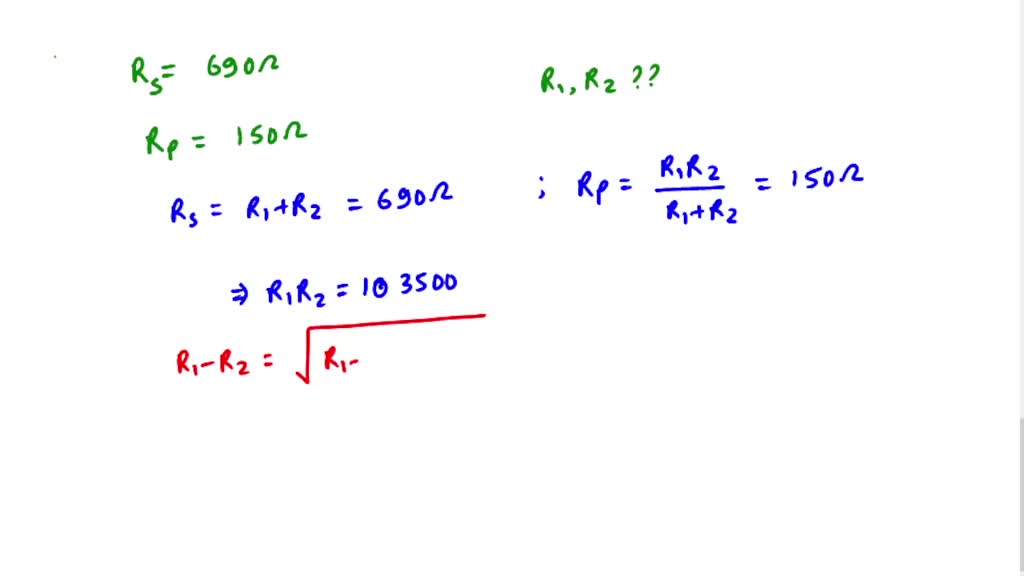 R_s = 690Ω
R_1, R_2 ??
R_p = 150Ω
R_s = R_1+R_2 = 690Ω ; R_p = \frac{R_1R_2}{R_1+R_2} = 150Ω
⇒ R_1R_2 = 103500
R_1-R_2 = \sqrt{R_1-}